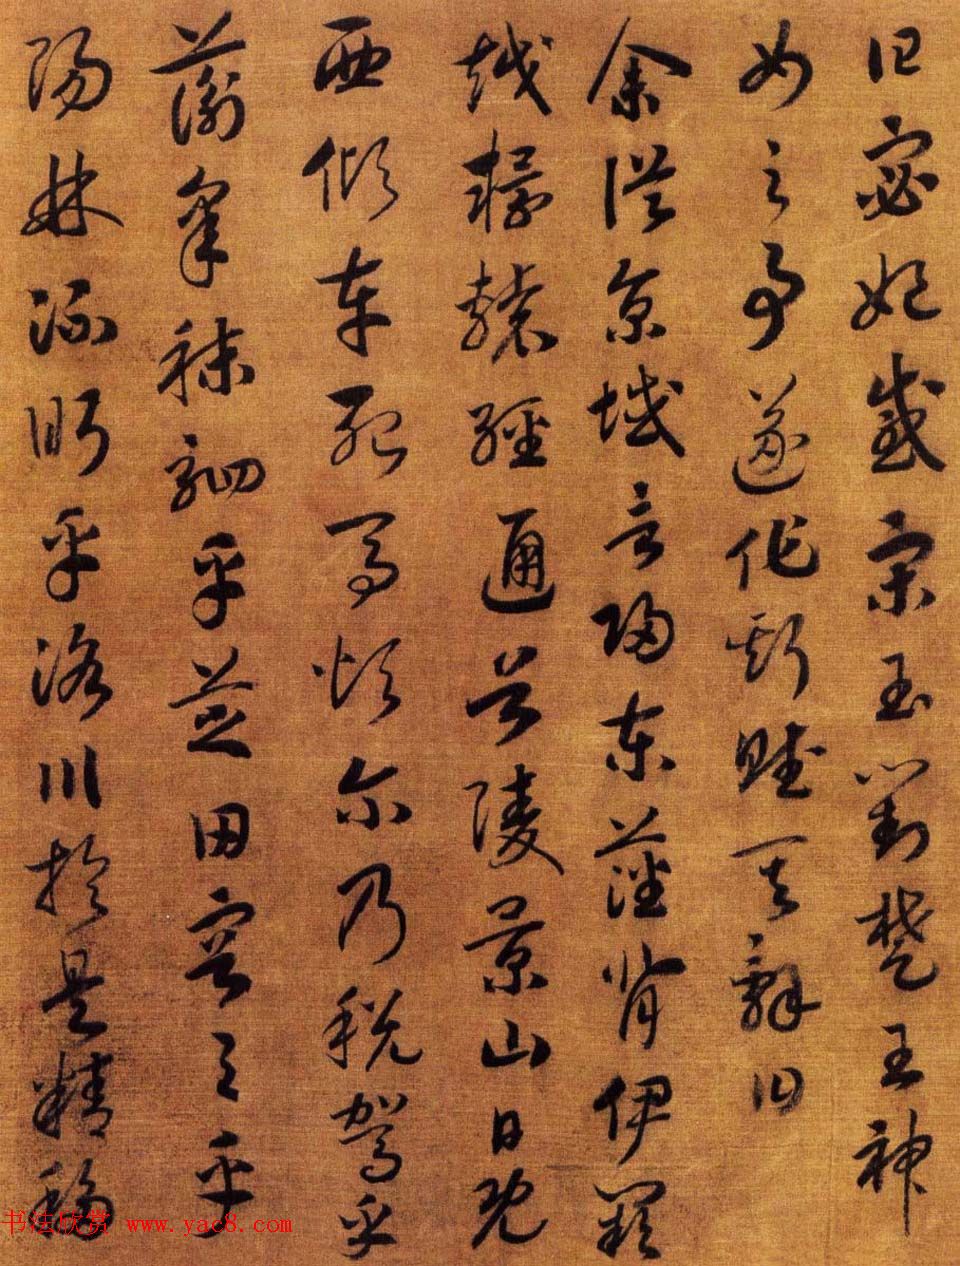 曰宓妃感宋玉對楚王神
女之事遂作斯賦其辭曰
余從京域言歸東藩背伊闕
越轘轅經通谷陵景山日既
西傾車殆馬煩尔乃税駕乎
蘅皋秣駟乎芝田容與乎
陽林流眄乎洛川於是精移
书法欣赏 www.yac8.com